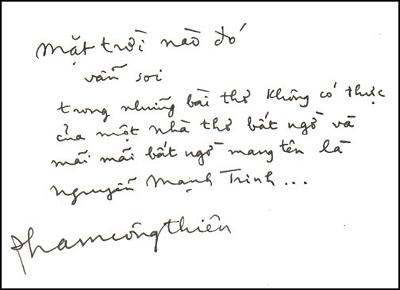 mặt trời nào đó
vẫn soi
trong những bài thơ không có thực
của một nhà thơ bất ngờ và
mãi mãi bất ngờ mang tên là
Nguyễn Mạnh Trinh...
phamcôngthiên